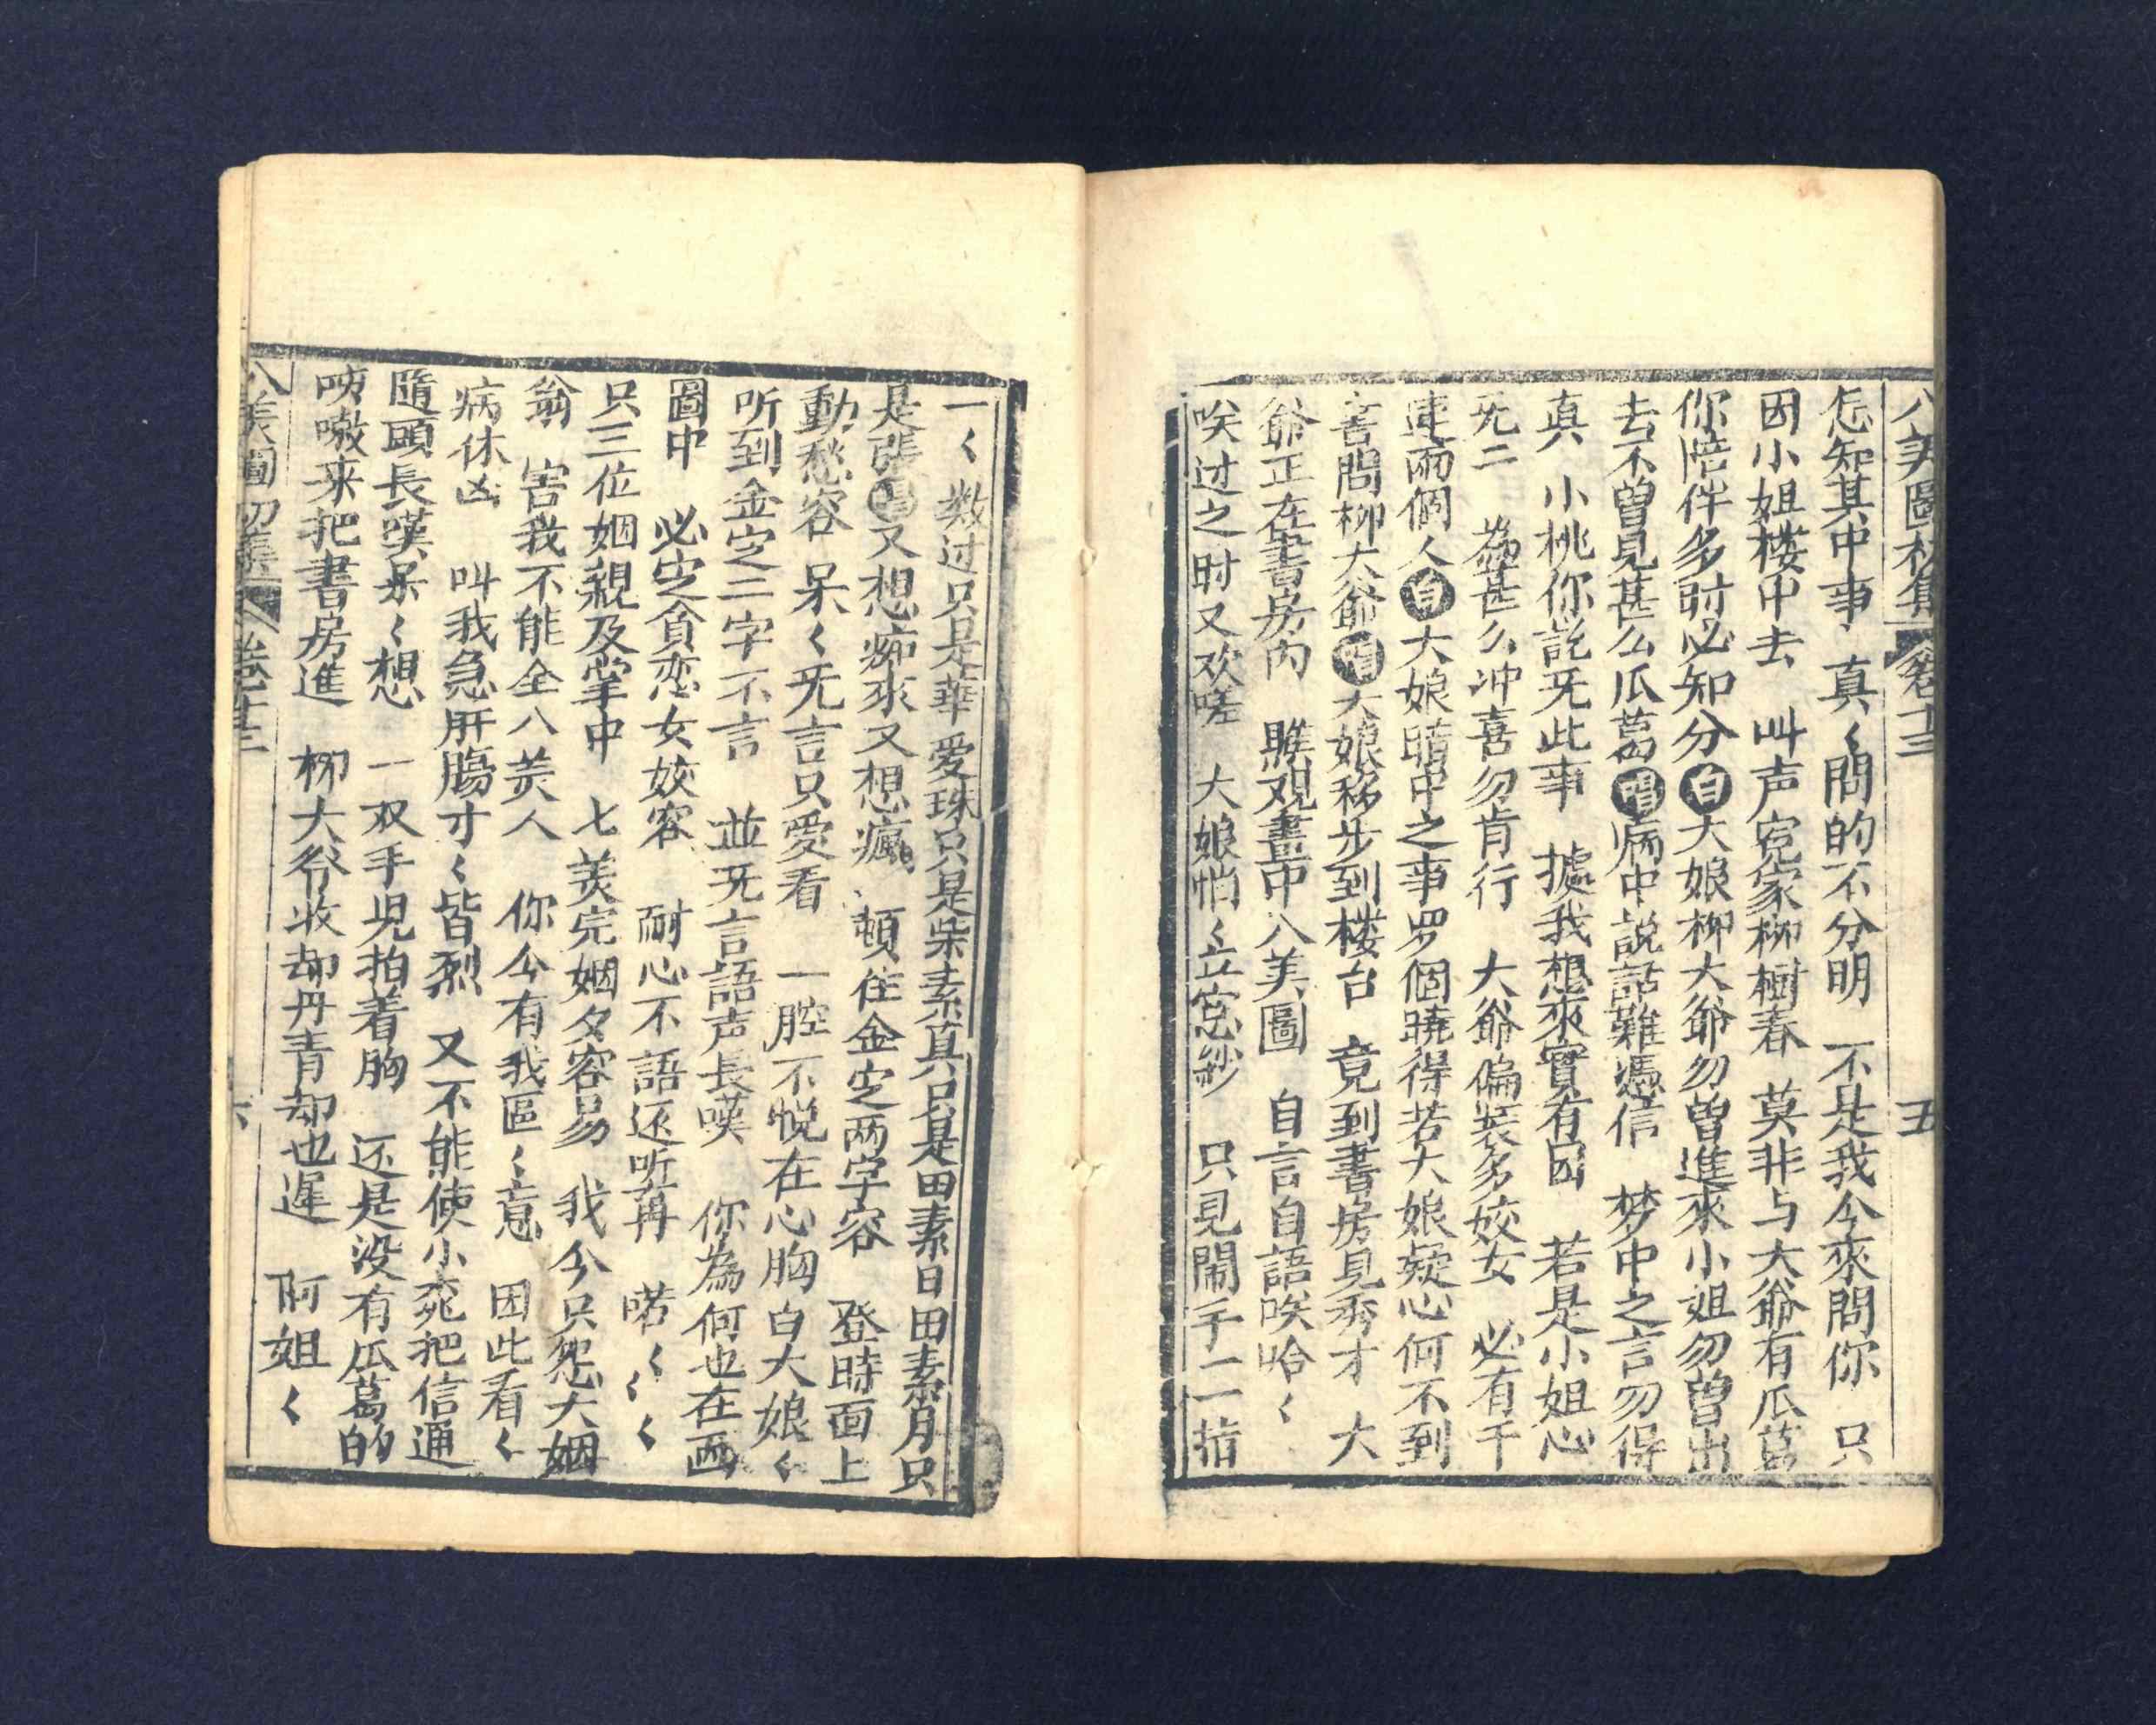 八美圖 卷十三 五
怎知其中事 真〱問的不分明 不是我今來問你 只
因小姐楼中去 叫声寃家柳樹春 莫非与大爺有瓜葛
你陪伴多时必知分 白 大娘柳大爺勿曾進來小姐勿曾出
去不曾見甚么瓜葛 唱 病中説話難憑信 梦中之言勿得
真 小桃你說旡此事 據我想來實有因 若是小姐心
旡二 為甚么冲喜勿肯行 大爺偏装多姣女 必有干
連兩個人 白 大娘暗中之事罗個曉得若大娘疑心何不到
書問柳大爺 唱 大娘移步到楼台 竟到書房見秀才 大
爺正在書房内 瞧观畫中八美圖 自言自語唉哈〱
唉过之时又欢嗟 大娘悄〱立窓紗 只見開手一一指
一〱数过只是華愛珠只是柴素真只是田素日田素月只
是張 唱 又想痴來又想瘋 頓住金定两字容 登時面上
動愁容 呆〱旡言只爱看 一腔不悦在心胸 白 大娘〱
听到金定二字不言 並旡言語声長嘆 你為何也在画
圖中 必定貪恋女姣容 耐心不語还听再 喏〱〱〱
只三位姻親及掌中 七美完姻多容易 我今只怨大姻
翁 害我不能全八美人 你今有我區〱意 因此看〱
病休凶 叫我急肝腸寸〱皆烈 又不能使小桃把信通
隨頭長嘆呆〱想 一双手児拍着胸 还是没有瓜葛的
咦嗷来把書房進 柳大爷收却丹青却也遲 阿姐〱
八美圖初集 卷十三 六